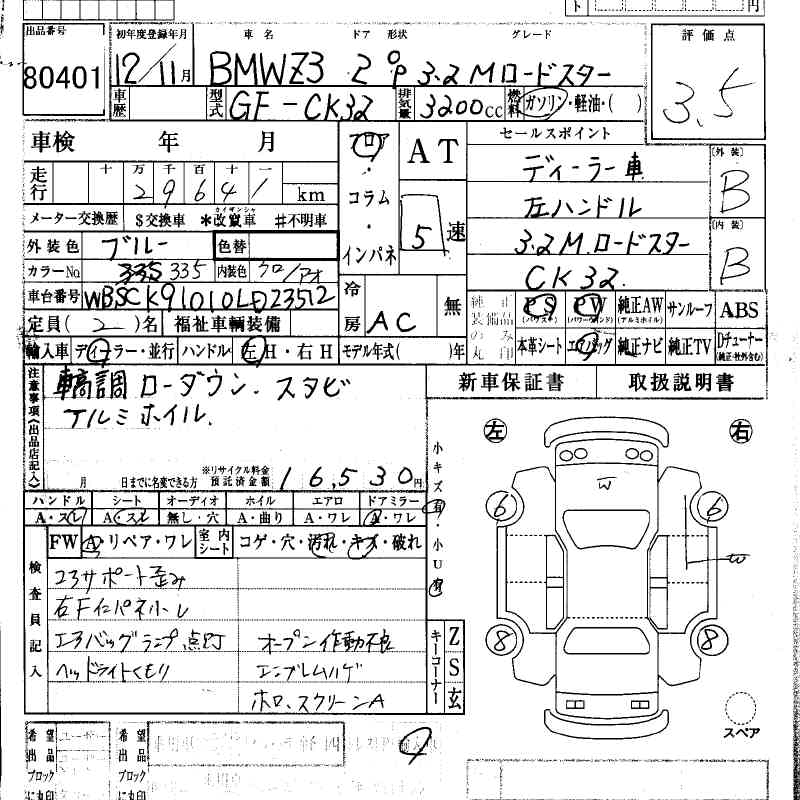 出品番号 初年度登録年月 車名 ドア 形状 グレード 評価点
80401 12/11月 BMWZ3 2 OP 3.2 Mロードスター 3.5
車歴 型式 GF-CK32 排気量 3200cc 燃料 ガソリン・軽油・( )
車検 年 月 フロア AT セールスポイント
走行 十 万 千 百 十 一
2 9 6 4 1 km
コラム ディーラー車 外装 B
メーター交換歴 $交換車 *改竄車 #不明車 カイザンシャ
・ 5速 左ハンドル
外装色 ブルー 色替 インパネ 3.2M.ロードスター 内装 B
カラーNo. 335 335 内装色 クロ/アオ CK32.
車台番号 WBSCK91010LD23512 冷房 AC 無
純正装備品のみ丸印 PS (パワステ) PW (パワーウインド) 純正AW (アルミホイル) サンルーフ ABS
定員( 2 )名 福祉車輌装備
輸入車 ディーラー・並行 ハンドル 左H・右H モデル年式( )年
本革シート エアバッグ 純正ナビ 純正TV Dチューナー (純正・社外含む)
注意事項(出品店記入) 車高調 ローダウン. スタビ
アルミホイル.
新車保証書 取扱説明書
月 日までに名変できる方 ※リサイクル料金預託済金額 16,530円
左 右
小キズ有・小U有
ハンドル シート オーディオ ホイル エアロ ドアミラー
A・スレ A・スレ 無し・穴 A・曲り A・ワレ A・ワレ
FW A・リペア・ワレ 室内シート コゲ・穴・汚れ・キズ・破れ
検査員記入 コアサポート歪み
右Fインパネホール
エアバッグランプ点灯 オープン作動不良
ヘッドライトくもり エンブレムハゲ
ホロ、スクリーンA
キーコーナー ZS玄
W
6 6
W
8 8
スペア
4
希望出品ブロックに丸印 ユーザー
希望出品ブロックに丸印